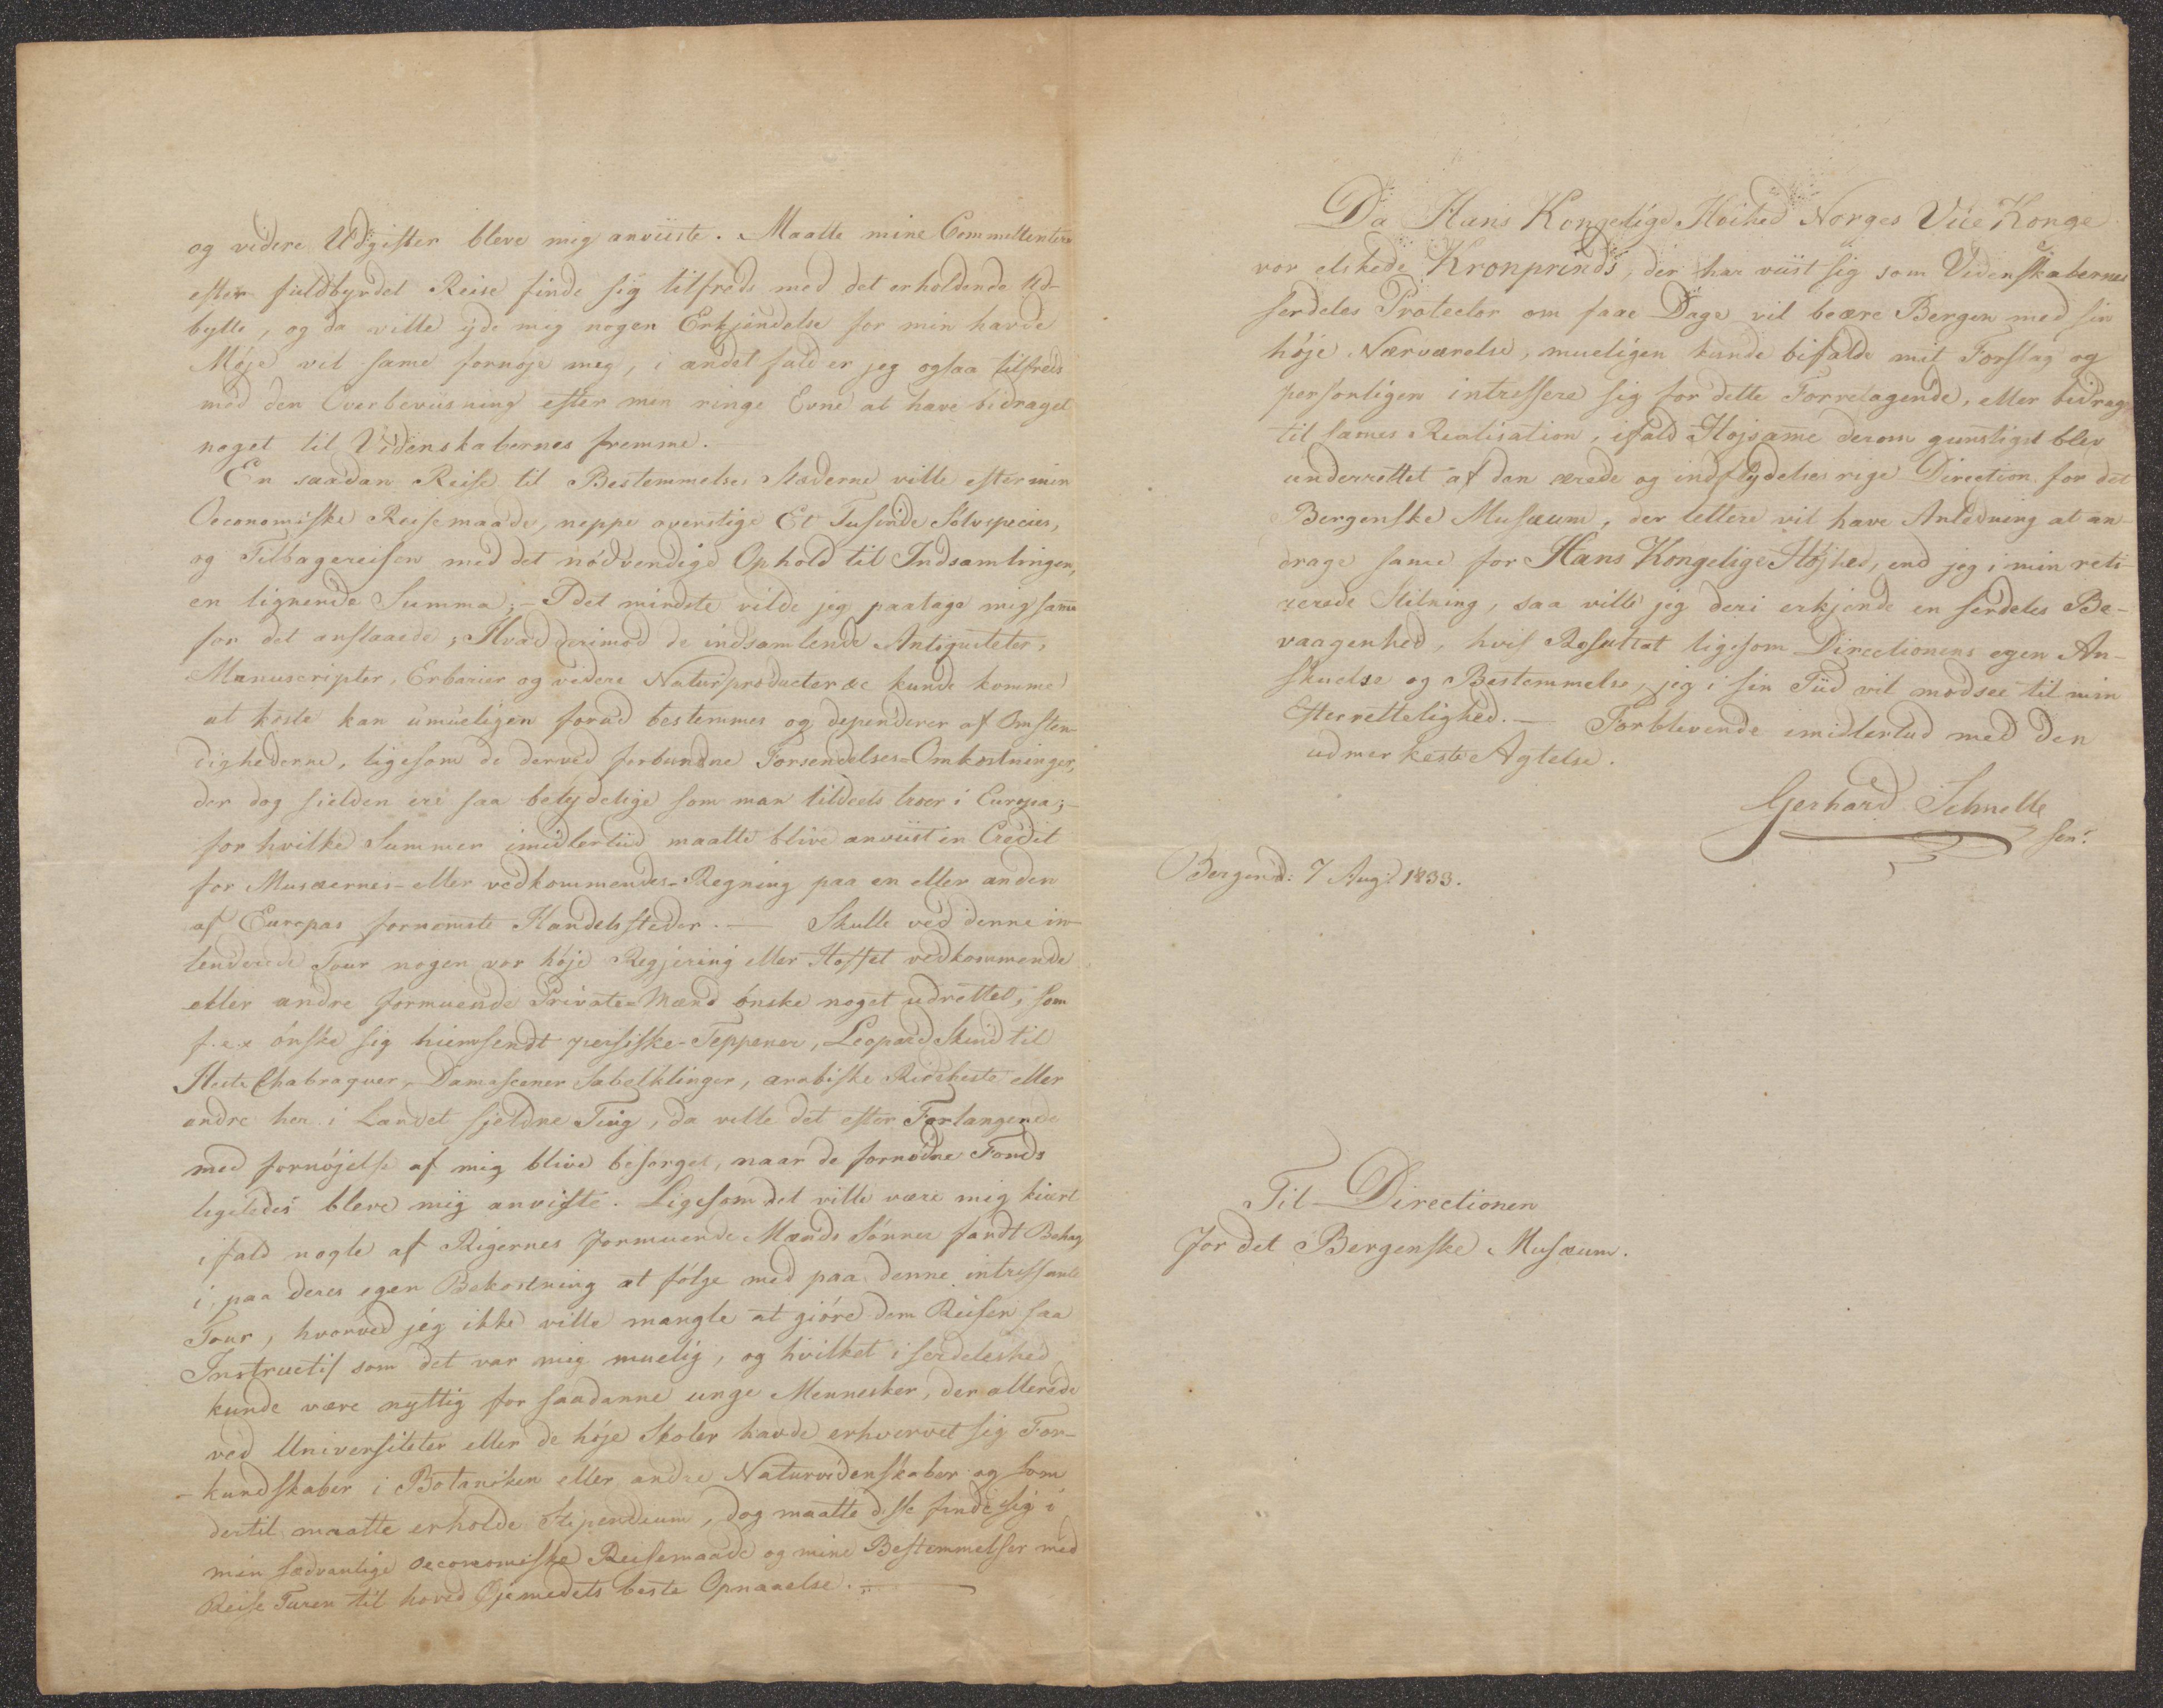 og videre Udgifter bleve mig anviiste. Maatte mine Committentere
efter fuldbyrdet Reise finde sig tilfreds med det erholdende Ud-
bytte, og da ville yde mig nogen Erkjendelse for min havde
Möje vil same fornöje mig, i andet fald er jeg ogsaa tilfreds
med den Overbeviisning efter min ringe Evne at have bidraget
noget til Videnskabernes fremme.
En saadan Reise til Bestemmelses Stæderne ville efter min
Oeconomiske Reisemaade, neppe overstige Et Tusinde Sölvspecies,
og Tilbagereisen med det nödvendige Ophold til Indsamlingen,
en lignende Summa; – I det mindste vilde jeg paatage mig same
for det anstaaede; Hvad derimod de indsamlende Antiquiteter,
Manuscripter, Erbarier og videre Naturproducter &c kunde komme
at koste kan umueligen forud bestemmes og dependerer af Omsten-
dighederne, ligesom de derved forbundne Forsendelses-Omkostninger,
der dog sielden ere saa betydelige som man tildeels troer i Europa; –
for hvilke Summer imidlertiid maatte blive anviist en Credit
for Musæernes- eller vedkommendes-Regning paa en eller anden
af Europas fornemste Handelsstæder. – Skulle ved denne in-
tenderede Tour nogen vor höje Regjering eller Hoffet vedkommende
eller andre formuende Private-Mænd önske noget udrettet, som
f. ex önske sig hiemsendt persiske-Teppener, Leopard Skind til
Heste Chabraquer, Damascener Sabelklinger, arabiske Rideheste eller
andre her i Landet sjeldne Ting, da ville det efter Forlangende
med fornöjelse af mig blive besorget, naar de fornödne Fonds
ligeledes bleve mig anviste. Ligesom det ville være mig kiært
ifald nogle af Rigernes formuende Mænds Sönner fandt Behag
i, paa deres egen Bekostning at fölge med paa denne intressante
Tour, hvorved jeg ikke ville mangle at giöre dem Reisen saa
Instructif som det var mig muelig, og hvilket i serdeleshed
kunde være nyttig for saadanne unge Mennesker, der allerede
ved Universiteter eller de höje Skoler havde erhvervet sig For-
- kundskaber i Botaniken eller andre Naturvidenskaber og som
dertil maatte erholde Stipendium, dog maatte disse finde sig i
min sædvanlige oeconomiske Reisemaade og mine Bestemmelser med
Reise Turen til hoved Öjemedets beste Opnaaelse. –
Da Hans Kongelige Höihed Norges Vice Konge
vor elskede Kronprinds, der har viist sig som Videnskabernes
serdeles Protector om faae Dage vil beære Bergen med sin
höje Nærværelse, mueligen kunde bifalde mit Forslag og
personligen intressere sig for dette Forretagende, eller bidrage
til sames Realisation, ifald Höjsame derom gunstigst blev
underrettet af den ærede og indflydelses rige Direction for det
Bergenske Musæum, der lettere vil have Anledning at an-
drage same for Hans Kongelige Höjhed, end jeg i min reti-
rerede Stilning, saa ville jeg deri erkjende en serdeles Be-
vaagenhed, hvis Resultat ligesom Directionens egen An-
skuelse og Bestemmelse, jeg i sin Tiid vil modsee til min
Efterrettelighed. – Forblevende imidlertud med den
udmerkeste Agtelse.
Gerhard Schnelle
senr.
Bergen d: 7 Augt 1833.
Til Directionen
for det Bergenske Musæum.